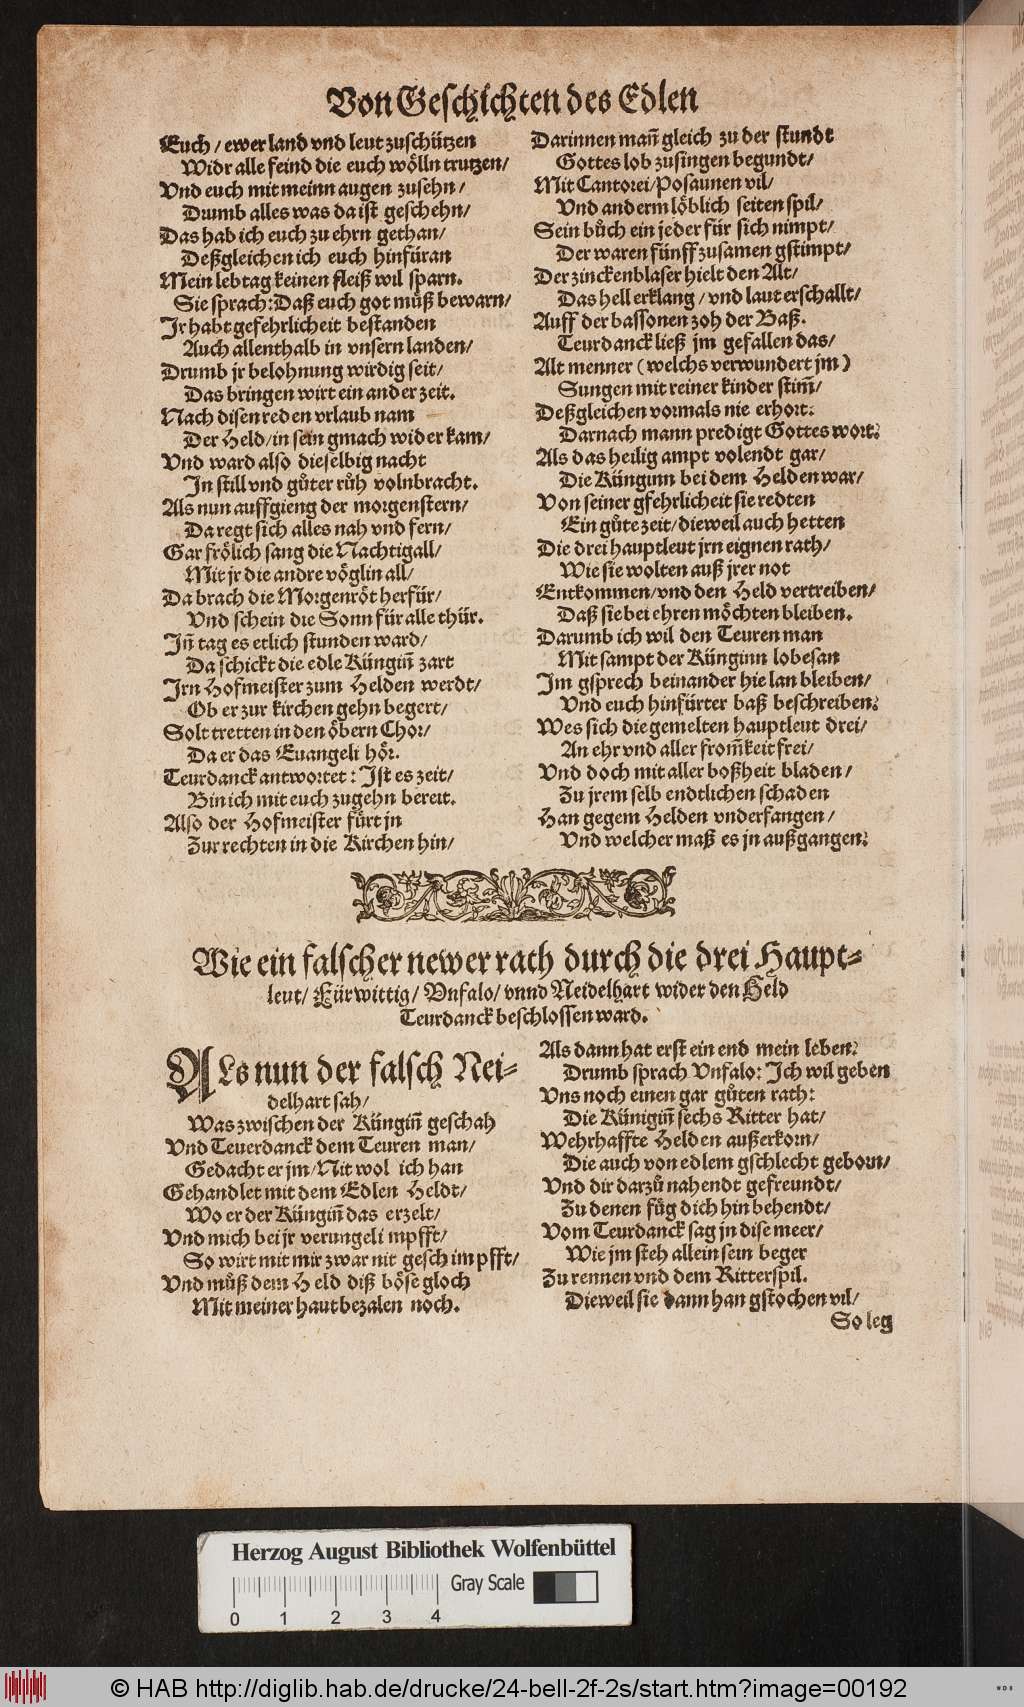 Von Geschichten des Edlen
Euch / ewer land vnd leut zuschützen
Widr alle feind die euch wölln trutzen/
Vnd euch mit meinn augen zusehn /
Drumb alles was da ist geschehn/
Das hab ich euch zu ehrn gethan/
Deßgleichen ich euch hinfüran
Mein lebtag keinen fleiß wil sparn.
Sie sprach: Daß euch got můß bewarn/
Jr habt gefehrlicheit bestanden
Auch allenthalb in vnsern landen/
Drumb jr belohnung wirdig seit/
Das bringen wirt ein ander zeit.
Nach disen reden vrlaub nam
Der Held/ in sein gmach wider kam/
Vnd ward also dieselbig nacht
Jn still vnd gůter růh volnbracht.
Als nun auffgieng der morgenstern/
Da regt sich alles nah vnd fern/
Gar frölich sang die Nachtigall/
Mit jr die andre vöglin all/
Da brach die Morgenröt herfür/
Vnd schein die Sonn für alle thür.
Jñ tag es etlich stunden ward/
Da schickt die edle Küngiñ zart
Jrn Hofmeister zum Helden werdt/
Ob er zur kirchen gehn begert/
Solt tretten in den öbern Chor/
Da er das Euangeli hör.
Teurdanck antwortet: Jst es zeit/
Bin ich mit euch zugehn bereit.
Also der Hofmeister fůrt jn
Zur rechten in die Kirchen hin/
Darinnen mañ gleich zu der stundt
Gottes lob zusingen begundt/
Mit Cantorei/ Posaunen vil/
Vnd anderm löblich seiten spil/
Sein bůch ein jeder für sich nimpt/
Der waren fünff zusamen gstimpt/
Der zinckenblaser hielt den Alt/
Das hell erklang / vnd laut erschallt/
Auff der bassonen zoh der Baß.
Teurdanck ließ jm gefallen das/
Alt menner (welchs verwundert jm)
Sungen mit reiner kinder stim̃/
Deßgleichen vormals nie erhort:
Darnach mann predigt Gottes wort.
Als das heilig ampt volendt gar/
Die Künginn bei dem Helden war/
Von seiner gfehrlicheit sie redten
Ein gůte zeit/ dieweil auch hetten
Die drei hauptleut jrn eignen rath/
Wie sie wolten auß jrer not
Entkommen/ vnd den Held vertreiben/
Daß sie bei ehren möchten bleiben.
Darumb ich wil den Teuren man
Mit sampt der Künginn lobesan
Jm gsprech beinander hie lan bleiben/
Vnd euch hinfürter baß beschreiben.
Wes sich die gemelten hauptleut drei/
An ehr vnd aller from̃keit frei/
Vnd doch mit aller boßheit bladen/
Zu jrem selb endtlichen schaden
Han gegem Helden vnderfangen/
Vnd welcher maß es jn außgangen.
Wie ein falscher newer rath durch die drei Haupt=
leut/ Fürwittig/ Vnfalo/ vnnd Neidelhart wider den Held
Teurdanck beschlossen ward.
ALs nun der falsch Nei=
delhart sah/
Was zwischen der Küngiñ geschah
Vnd Teuerdanck dem Teuren man/
Gedacht er jm/ Nit wol ich han
Gehandlet mit dem Edlen Heldt/
Wo er der Küngiñ das erzelt/
Vnd mich bei jr verungelimpfft/
So wirt mit mir zwar nit geschimpfft/
Vnd můß dem Held diß böse gloch
Mit meiner haut bezalen noch.
Als dann hat erst ein end mein leben.
Drumb sprach Vnfalo: Jch wil geben
Vns noch einen gar gůten rath:
Die Künigiñ sechs Ritter hat/
Wehrhaffte Helden außerkorn/
Die auch von edlem gschlecht geborn/
Vnd dir darzů nahendt gefreundt/
Zu denen fůg dich hin behendt/
Vom Teurdanck sag jn dise meer/
Wie jm steh allein sein beger
Zu rennen vnd dem Ritterspil.
Dieweil sie dann han gstochen vil/
So leg
Herzog August Bibliothek Wolfenbüttel
Gray Scale
0 1 2 3 4
© HAB http://diglib.hab.de/drucke/24-bell-2f-2s/start.htm?image=00192